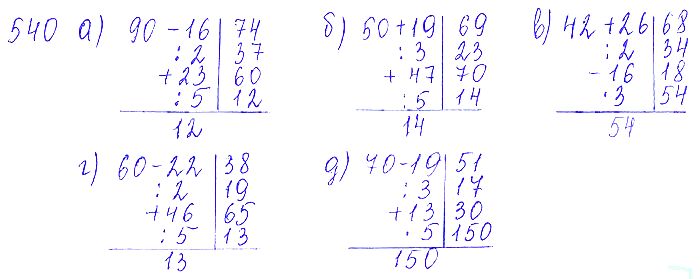 540 а) 90 - 16 | 74 б) 50 + 19 | 69 в) 42 + 26 | 68
: 2 | 37 : 3 | 23 : 2 | 34
+ 23 | 60 + 47 | 70 - 16 | 18
: 5 | 12 : 5 | 14 · 3 | 54
12 14 54
г) 60 - 22 | 38 д) 70 - 19 | 51
: 2 | 19 : 3 | 17
+ 46 | 65 + 13 | 30
: 5 | 13 · 5 | 150
13 150